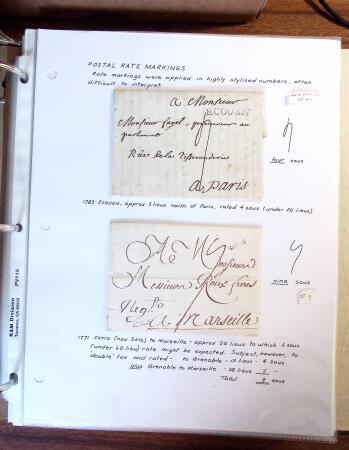 POSTAL RATE MARKINGS
Rate markings were applied in highly stylised numbers, often
difficult to interpret.
a Monsieur
ECOUEN
Monsieur Fayel, procureur au
parlement
Rüe de la Tisseranderie
a Paris
four sous
1783 ECOUEN, approx 5 lieus north of Paris, rated 4 sous (under 20 lieus)
A Messieurs
Messieurs Roux freres
Negts
A Marseille
nine sous
K&M Division
Torrance, CA 90503
PV110
1771 CETTE (now Sète) to Marseille - approx 50 lieus to which 6 sous
(under 60 lieu) rate might be expected. Subject, however, to
'double' tax and rated - to Grenoble - 12 lieus - 4 sous
plus Grenoble to Marseille - 38 lieus 5 -
Total 9 sous